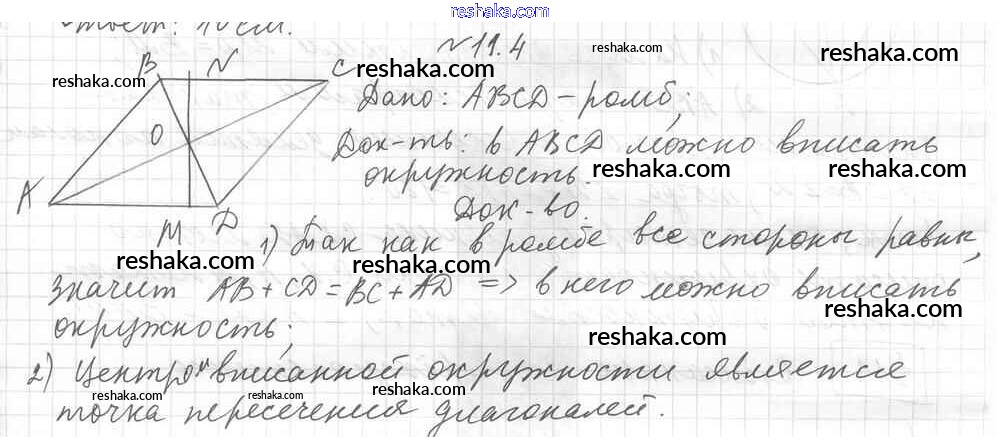 reshaka.com
Ответ: 10 см.
№ 11.4
reshaka.com
reshaka.com
B N C
reshaka.com
reshaka.com
Дано: ABCD – ромб;
O
Док-ть: в ABCD можно вписать
reshaka.com
reshaka.com
окружность.
A
Док-во.
M D
1) Так как в ромбе все стороны равны,
reshaka.com
reshaka.com
значит AB + CD = BC + AD => в него можно вписать
окружность;
reshaka.com
reshaka.com
2) Центром вписанной окружности является
reshaka.com
reshaka.com
reshaka.com
точка пересечения диагоналей.